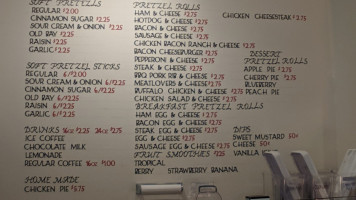 SOFT PRETZELS
REGULAR $2.00
CINNAMON SUGAR $2.25
SOUR CREAM & ONION $2.25
OLD BAY $2.25
RAISIN $2.25
GARLIC $2.25
SOFT PRETZEL STICKS
REGULAR 6/$2.00
SOUR CREAM & ONION 6/$2.25
CINNAMON SUGAR 6/$2.25
OLD BAY 6/$2.25
RAISIN 6/$2.25
GARLIC 6/$2.25
DRINKS 16oz $2.25 24oz $2.75
ICE COFFEE
CHOCOLATE MILK
LEMONADE
REGULAR COFFEE 16oz $1.00
HOME MADE
CHICKEN PIE $5.75
PRETZEL ROLLS
HAM & CHEESE $2.75
HOTDOG & CHEESE $2.75
BACON & CHEESE $2.75
SAUSAGE & CHEESE $2.75
CHICKEN BACON RANCH & CHEESE $2.75
BACON CHEESEBURGER $2.75
PEPPERONI & CHEESE $2.75
STEAK & CHEESE $2.75
BBQ PORK RIB & CHEESE $2.75
MEATLOVERS & CHEESE $2.75
BUFFALO CHICKEN & CHEESE $2.75
CHICKEN SALAD & CHEESE $2.75
BREAKFAST PRETZEL ROLLS
HAM EGG & CHEESE $2.75
BACON EGG & CHEESE $2.75
STEAK EGG & CHEESE $2.75
EGG & CHEESE $2.75
SAUSAGE EGG & CHEESE $2.75
FRUIT SMOOTHIES $2.25
TROPICAL
BERRY STRAWBERRY BANANA
CHICKEN CHEESESTEAK $2.75
DESSERT
PRETZEL ROLLS
APPLE PIE $2.75
CHERRY PIE $2.75
BLUEBERRY
PEACH PIE
DIPS
SWEET MUSTARD 50¢
CHEESE 50¢
VANILLA